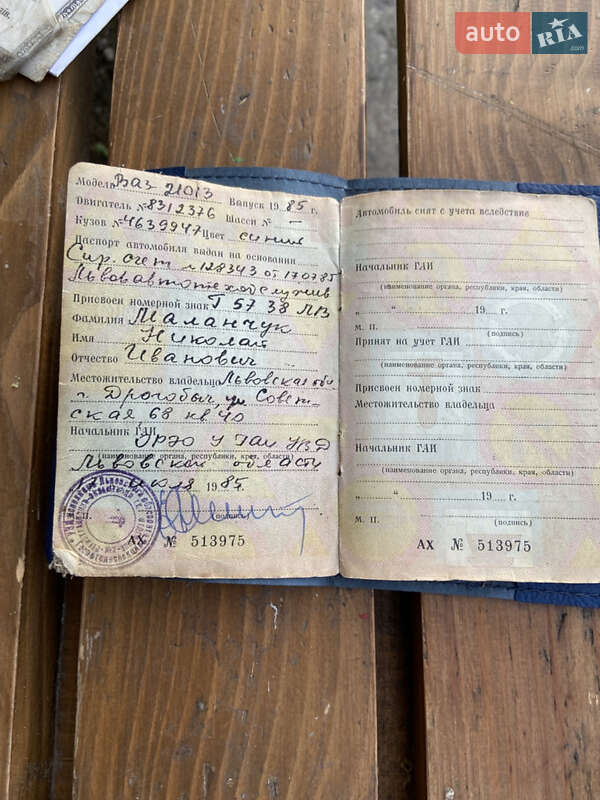 auto RIA .com
Модель Ваз 21013 Выпуск 1985 г.
Двигатель № 8312376 Шасси № –
Кузов № 4639947 Цвет синий
Паспорт автомобиля выдан на основании
Спр. счет № 128343 от 170785
Львовавтотехобслужив
Присвоен номерной знак Т 57 38 ЛВ
Фамилия Маланчук
Имя Николай
Отчество Иванович
Местожительство владельца Львовская обл
г. Дрогобыч, ул Совет-
ская 68 кв 40
Начальник ГАИ
УГАИ УВД
(наименование органа, республики, края, области)
Львовской области
июля 1985.
М. П.
(подпись)
АХ № 513975
Автомобиль снят с учета вследствие
Начальник ГАИ
(наименование органа, республики, края, области)
„ “ 19 г.
М. П. (подпись)
Принят на учет ГАИ
(наименование органа, республики, края, области)
Присвоен номерной знак
Местожительство владельца
Начальник ГАИ
(наименование органа, республики, края, области)
„ “ 19 г.
М. П. (подпись)
АХ № 513975